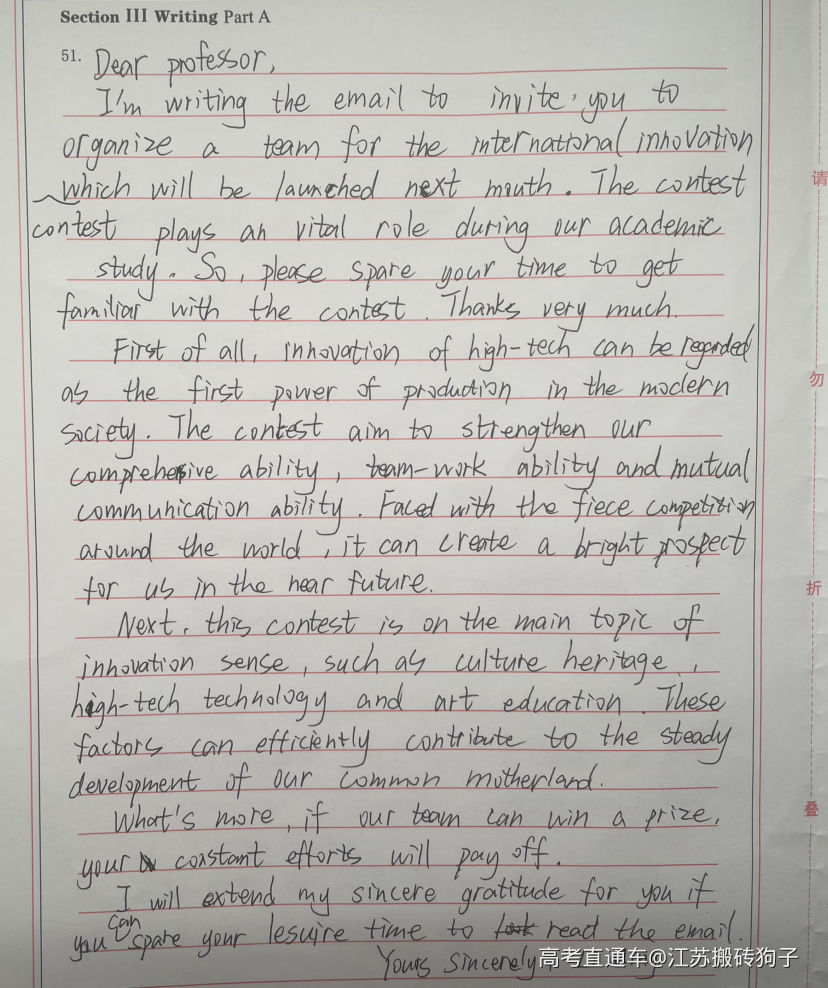 Section III Writing Part A
51. Dear professor,
I'm writing the email to invite you to
organize a team for the international innovation
which will be launched next mouth. The contest
contest plays an vital role during our academic
study. So, please spare your time to get
familiar with the contest. Thanks very much.
First of all, innovation of high-tech can be regarded
as the first power of production in the modern
society. The contest aim to strengthen our
comprehensive ability, team-work ability and mutual
communication ability. Faced with the fiece competition
around the world, it can create a bright prospect
for us in the near future.
Next, this contest is on the main topic of
innovation sense, such as culture heritage,
high-tech technology and art education. These
factors can efficiently contribute to the steady
development of our common motherland.
What's more, if our team can win a prize,
your constant efforts will pay off.
I will extend my sincere gratitude for you if
you can spare your lesuire time to read the email.
Yours sincerely,
高考直通车@江苏搬砖狗子
请
勿
折
叠